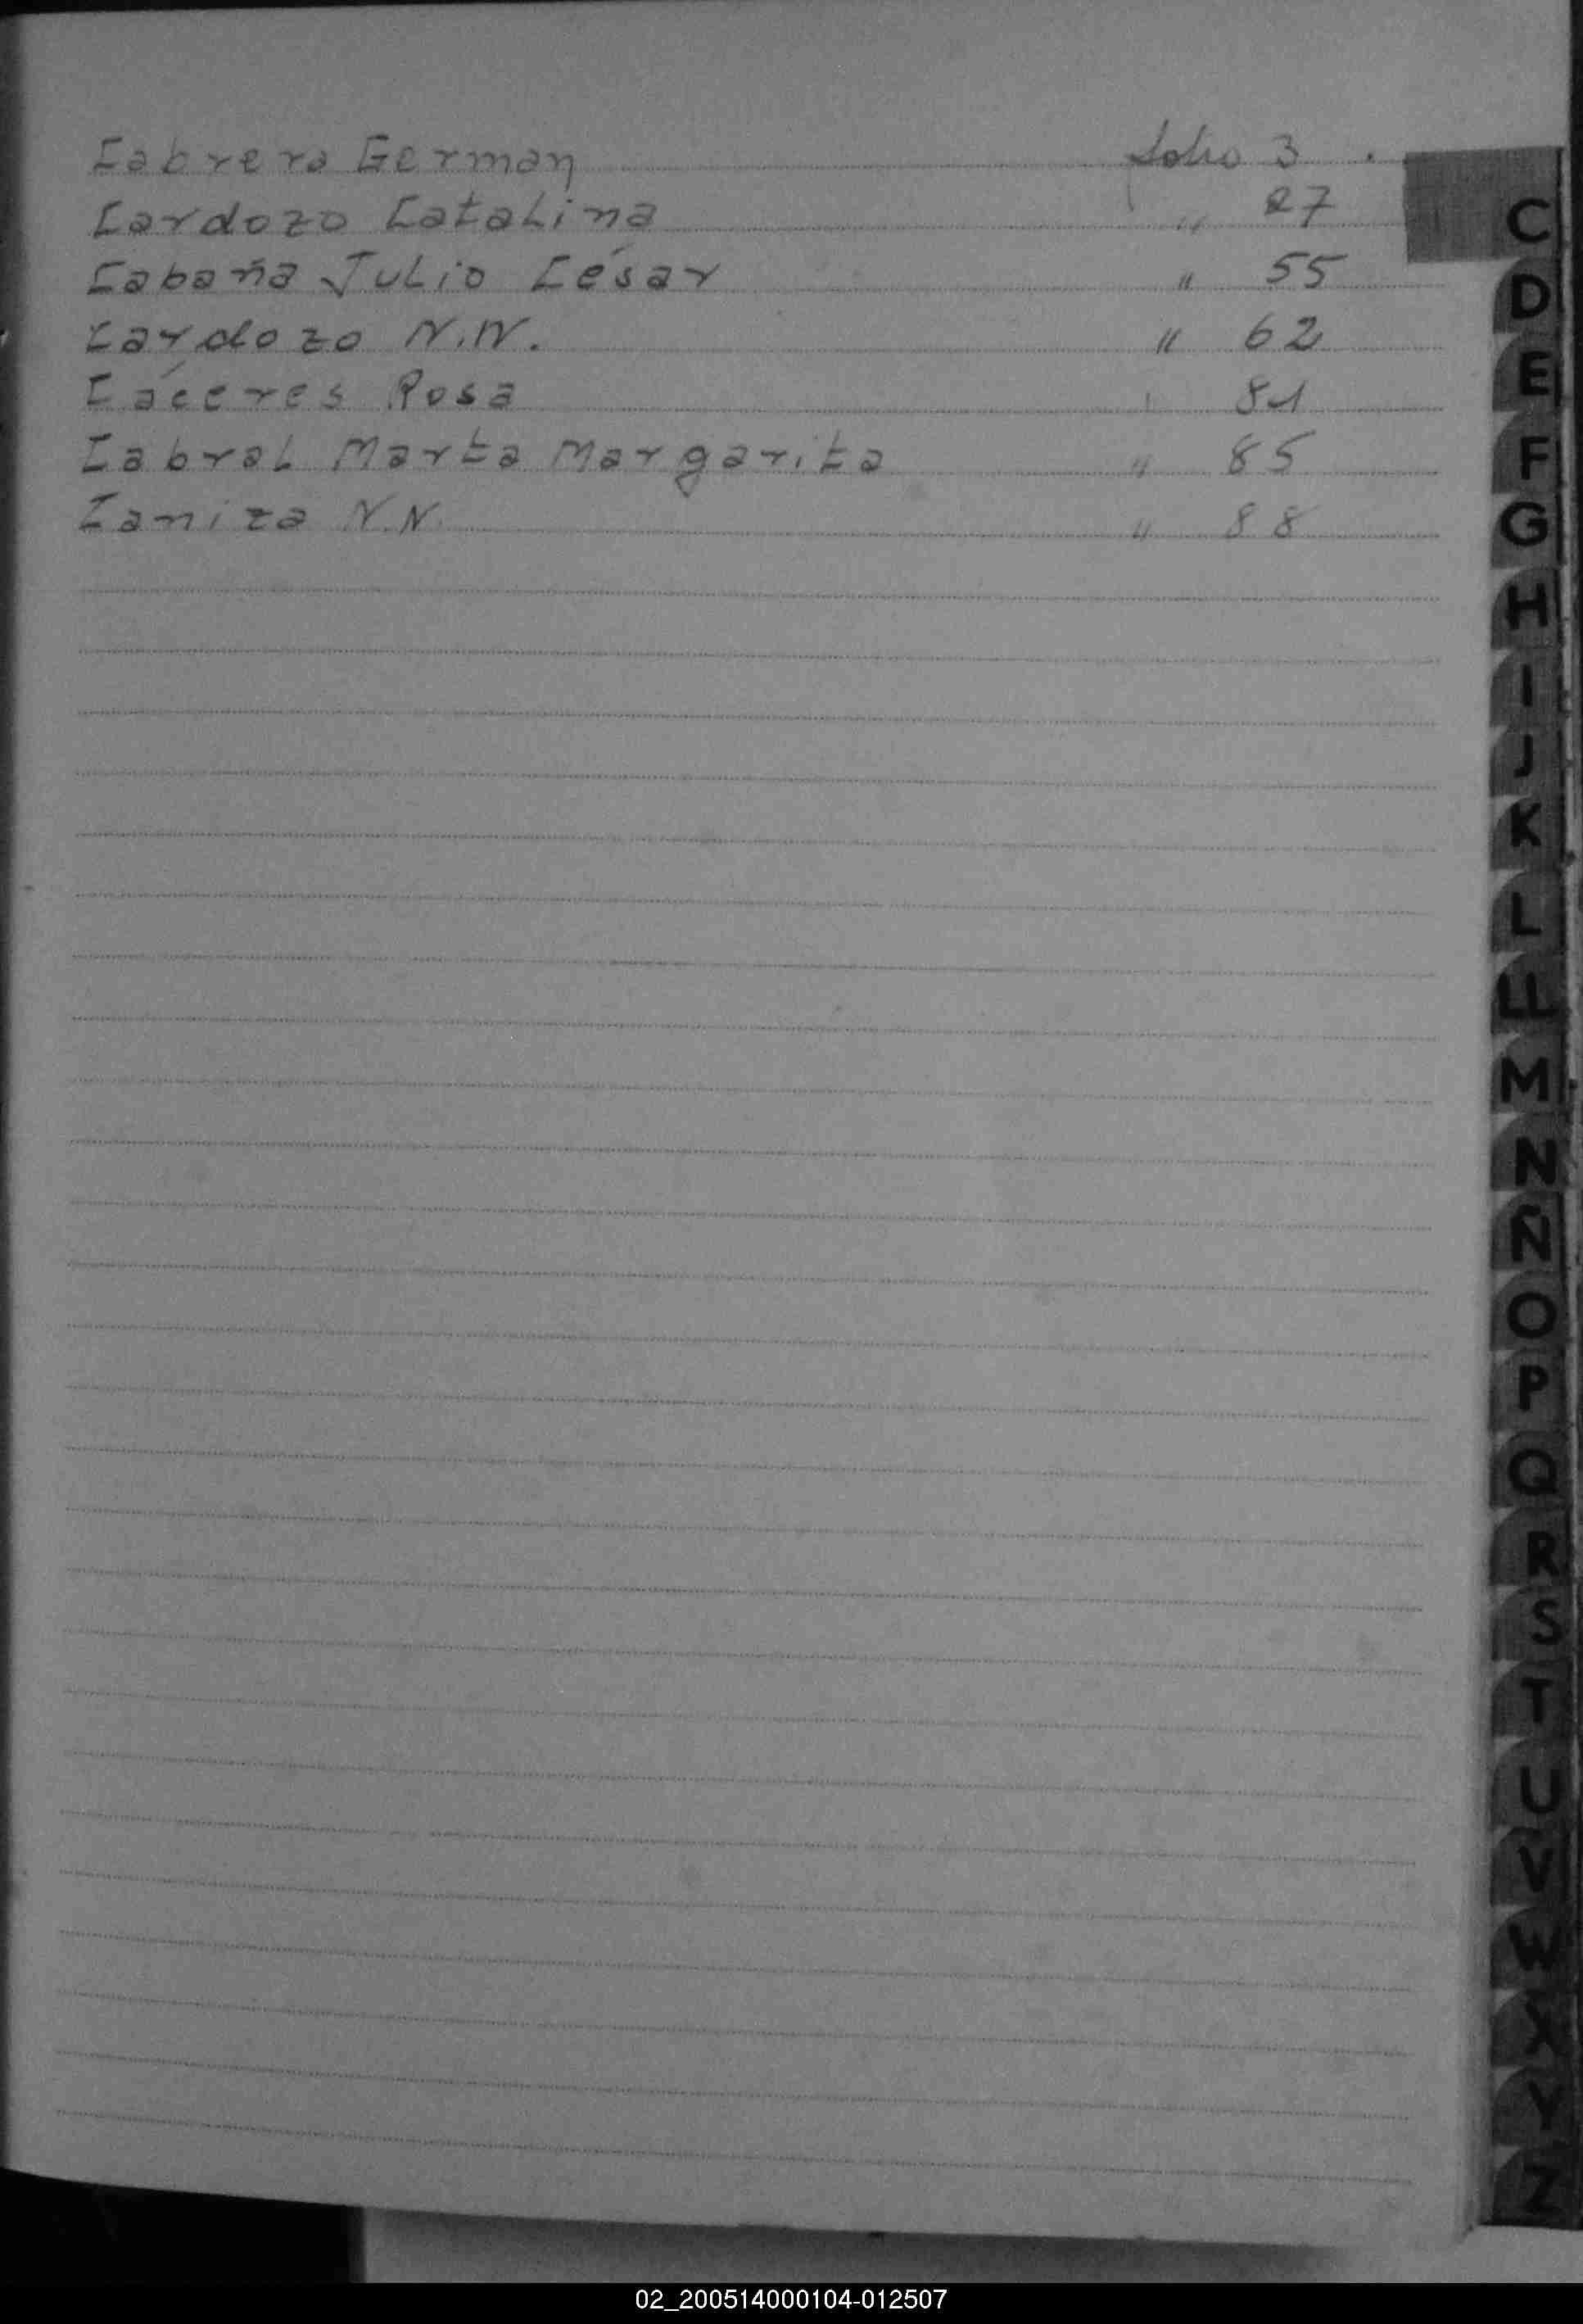 Cabrera German folio 3
Cardozo Catalina " 27
Cabaña Julio César " 55
Cardozo N.N. " 62
Cáceres Rosa " 81
Cabral Marta Margarita " 85
Caniza N.N. " 88
C
D
E
F
G
H
I
J
K
L
LL
M
N
Ñ
O
P
Q
R
S
T
U
V
W
X
Y
Z
02_200514000104-012507